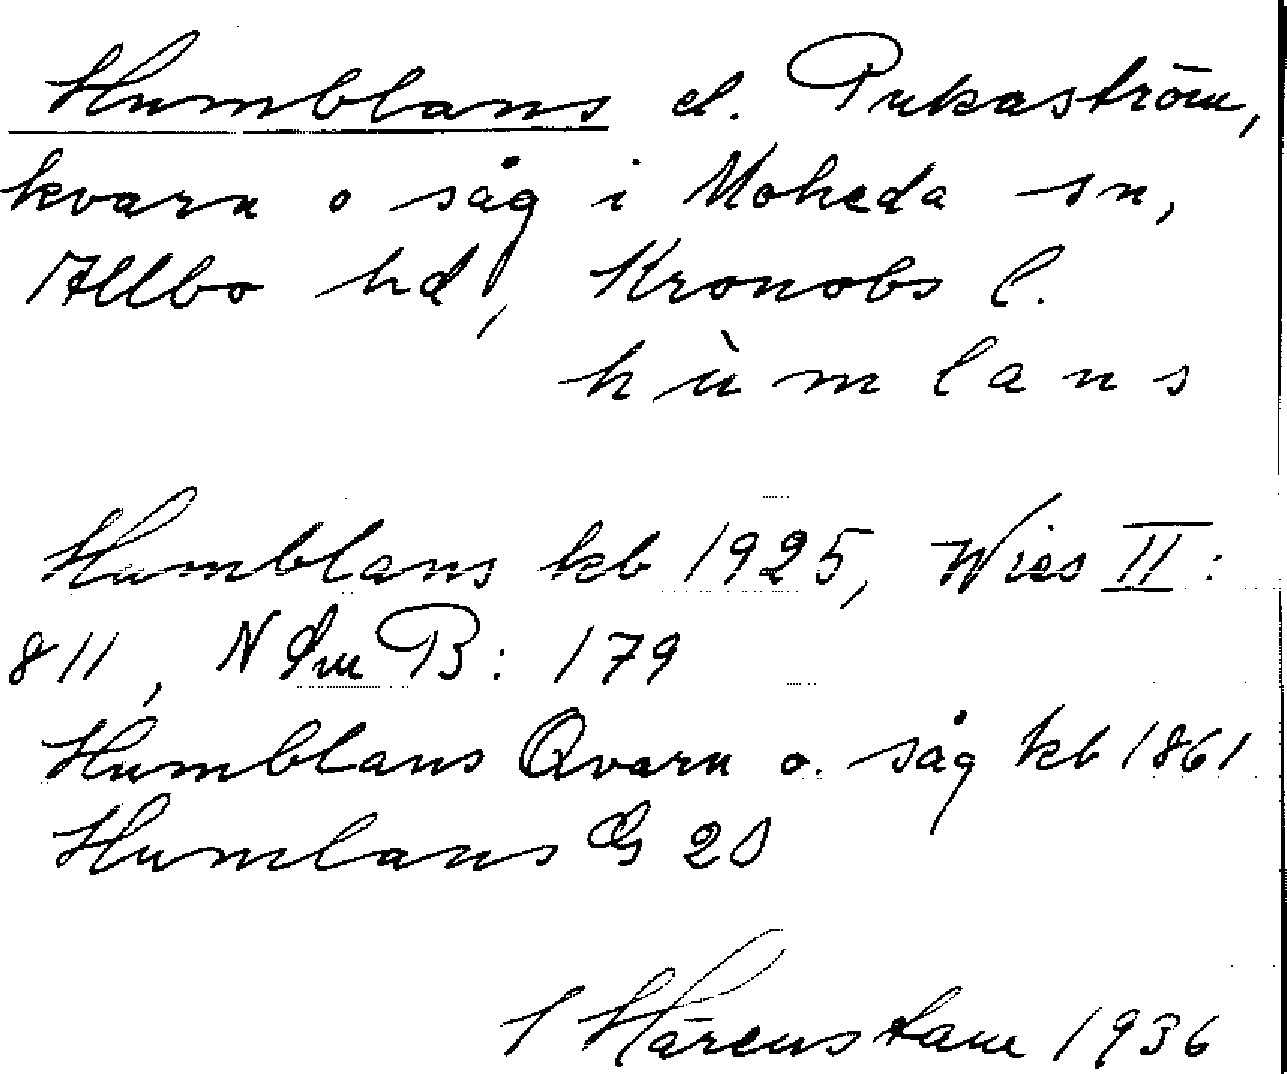 Humblans el. Pukaström,
kvarn o såg i Moheda sn,
Allbo hd, Kronobs l.
hùmlans
Humblans kb 1925, Wies II:
811, N Sm B: 179
Humblans Qvarn o. såg kb 1861
Humlans G 20
Härenstam 1936